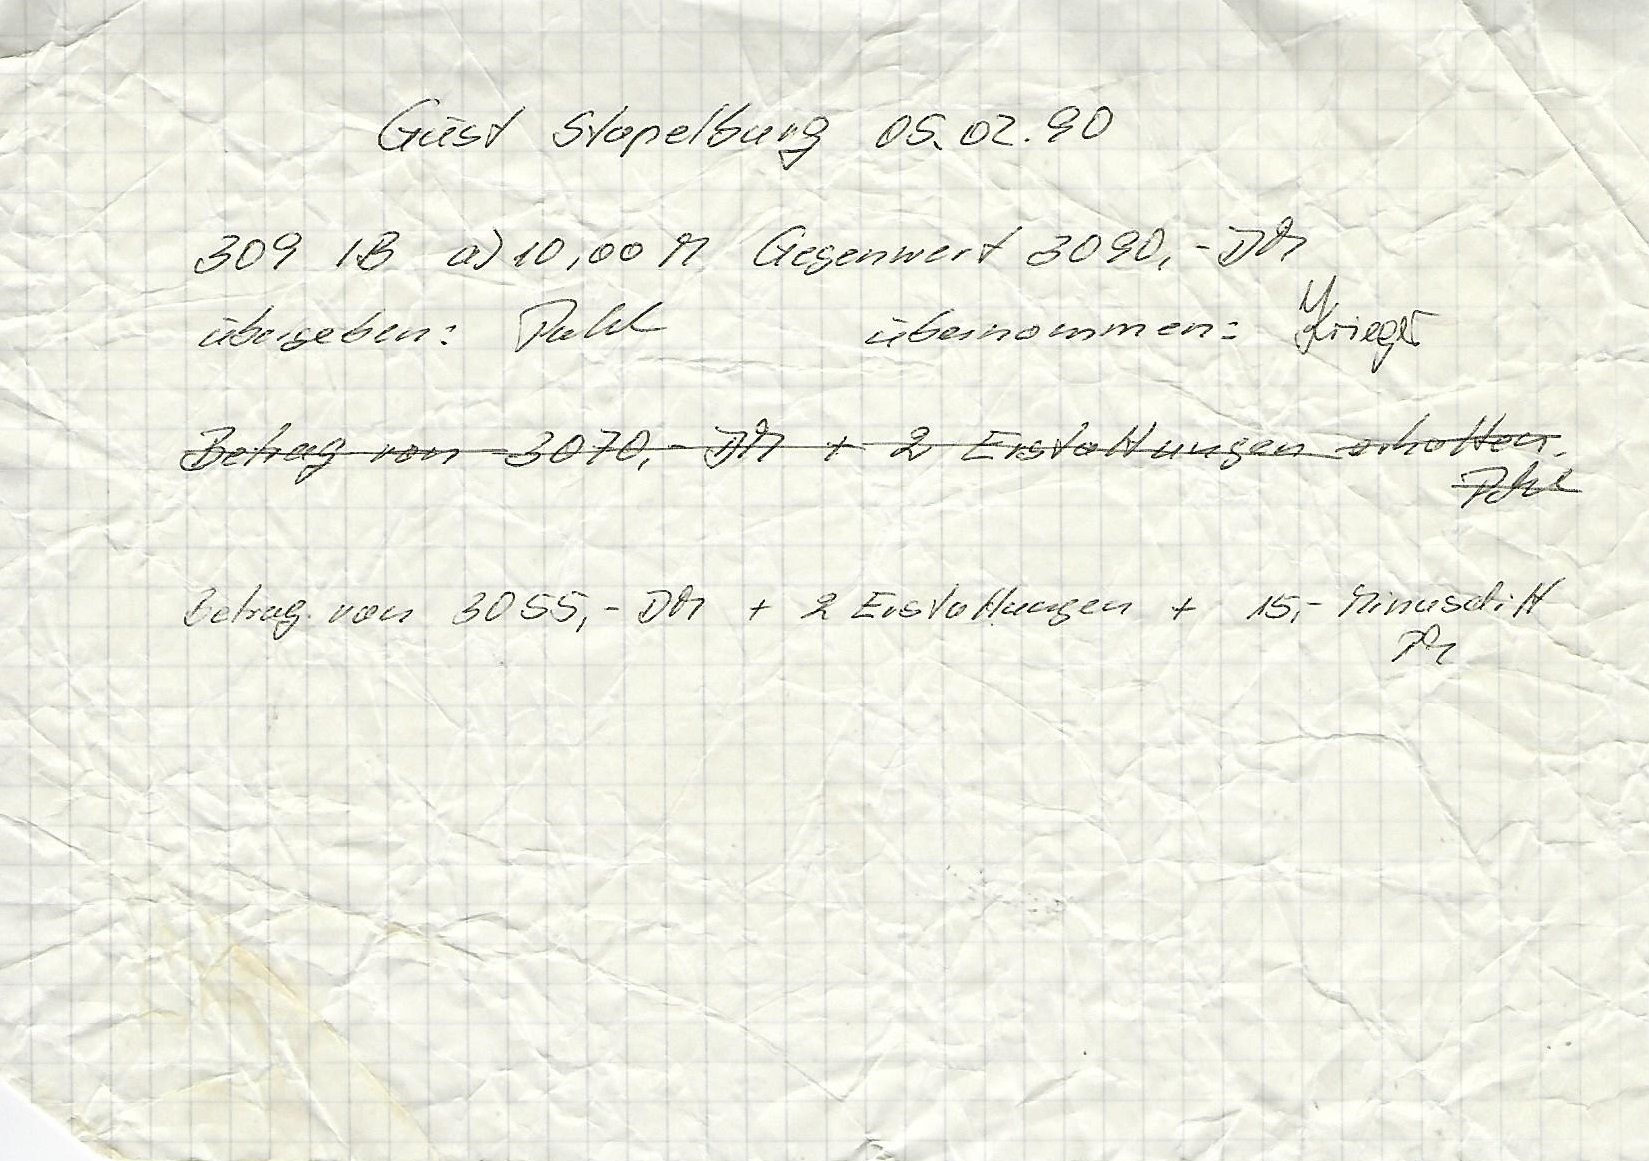 Güst Stapelburg 05.02.90
309 IB a) 10,00 M Gegenwert 3090,- DM
übergeben: Pahl übernommen: Krieger
Betrag von 3070,- DM + 2 Erstattungen erhalten.
Pahl
Betrag von 3055,- DM + 2 Erstattungen + 15,-